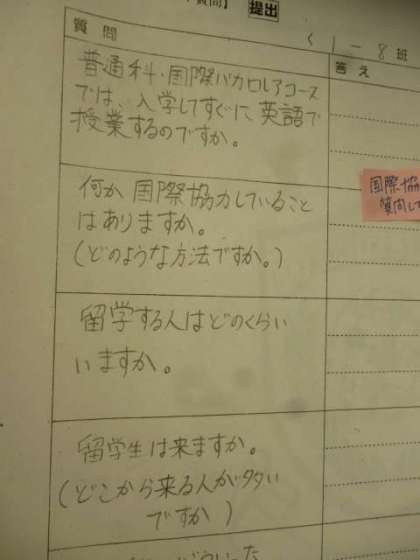 質問】
提出
く 1-8班
質問
答え
普通科・国際バカロレアコース
では、入学してすぐに、英語で
授業するのですか。
何か国際協力していること
はありますか。
(どのような方法ですか。)
国際協
質問して
留学する人はどのくらい
いますか。
留学生は来ますか。
(どこから来る人が多い
ですか)